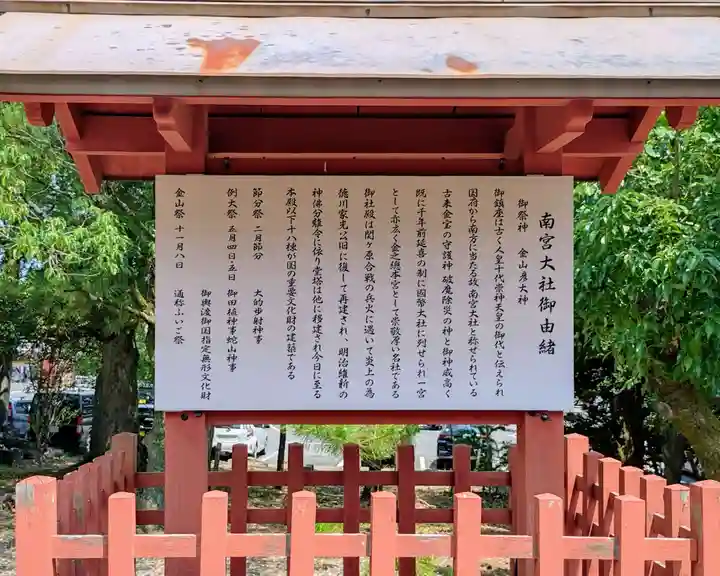 南宮大社御由緒
御祭神　金山彦大神
御鎮座は古く人皇十代崇神天皇の御代と伝えられ
国府から南方に当たる故 南宮大社と称せられている
古来金宝の守護神 破魔除災の神と御神威高く
既に千年前延喜の制に國幣大社に列せられ 一宮
として亦広く金之總本宮として崇敬厚い名社である
御社殿は関ヶ原合戦の兵火に遇いて炎上の為
徳川家光公旧に復して再建され、明治維新の
神佛分離令に依り堂塔は他に移建され今日に至る
本殿以下十八棟が国の重要文化財の建築である
節分祭　二月節分　大的歩射神事
例大祭　五月四日・五日　御田植神事蛇山神事
御輿渡御国指定無形文化財
金山祭　十一月八日　通称ふいご祭